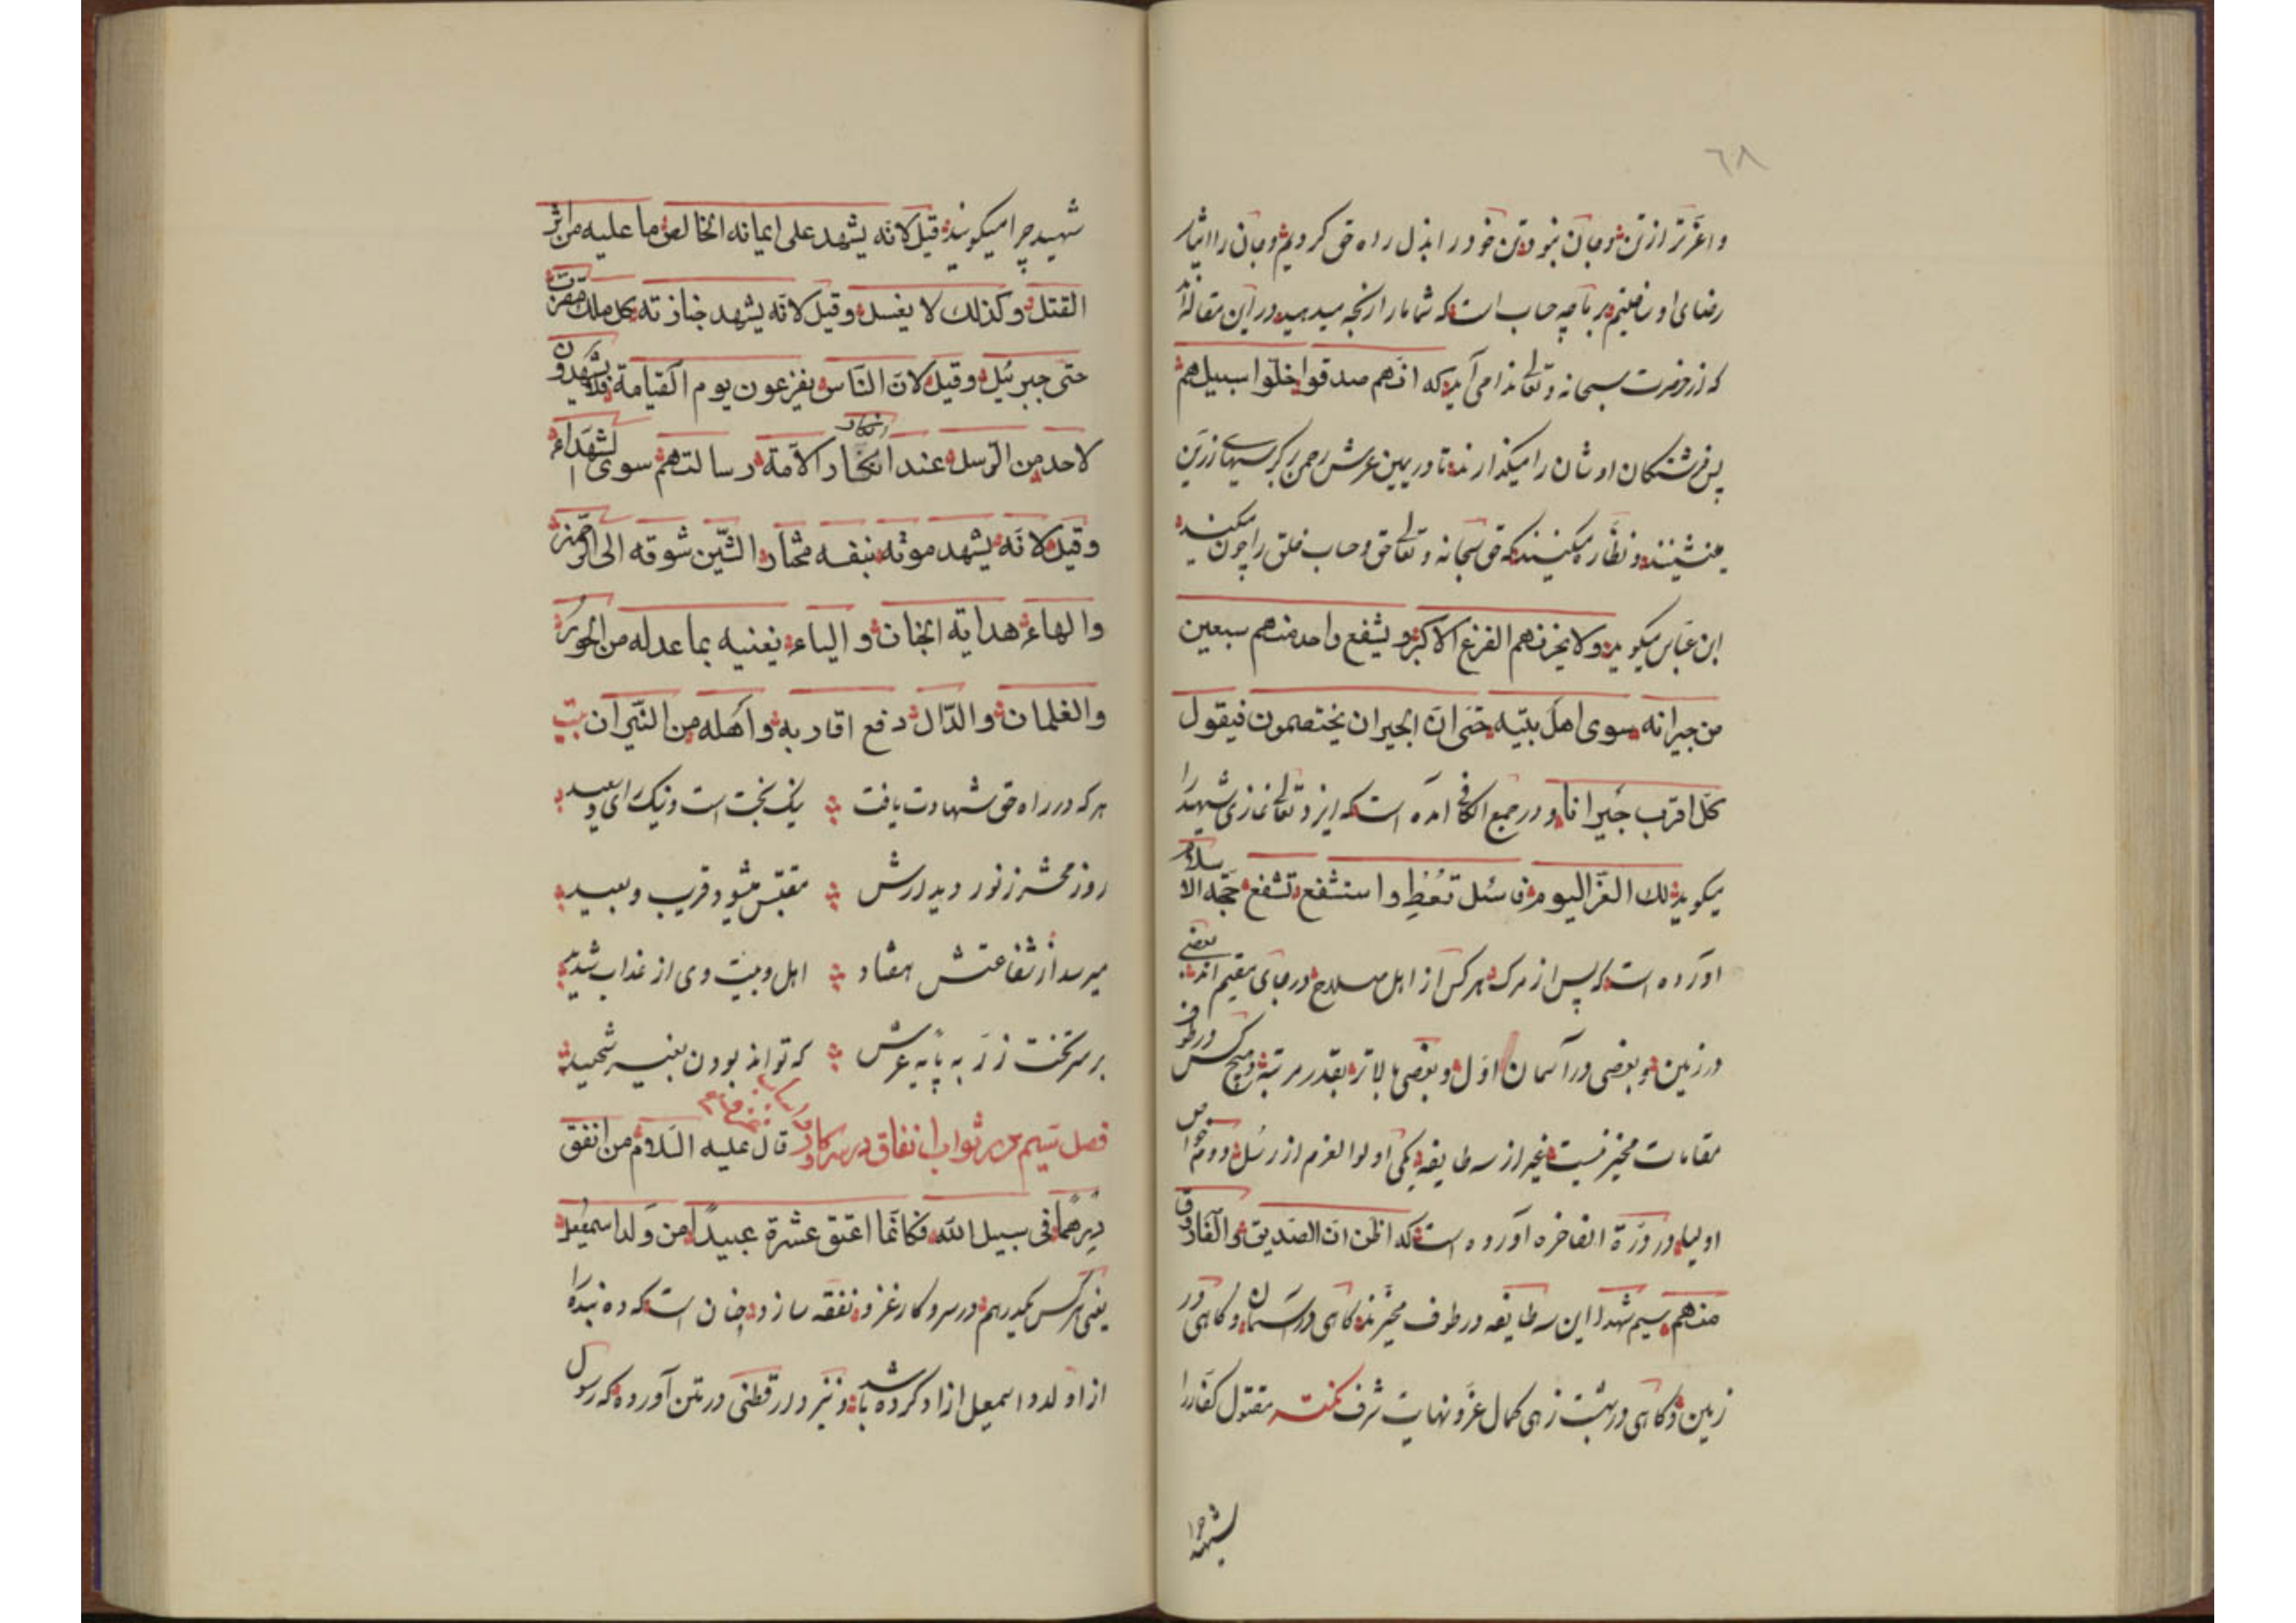 ٦٨
و اعزتر از تن و جان نبود تن خود را بذل راه حق کردیم و جان را ایثار
رضای او ساختیم بر ما چه حساب است که شما ما را رنجه میدهید در این مقاله اند
که از حضرت سبحانه و تعالی ندا می آید که انهم صدقوا خلوا سبیلهم
پس فرشتگان اوشان را میگذارند تا در یمین عرش رحمن بر کرسیهای زرین
مینشینند و نظاره میکنند که حق سبحانه و تعالی حق و حساب خلق را چون میکند
ابن عباس میگوید ولا یحزنهم الفزع الاکبر و یشفع واحد منهم سبعین
من جیرانه سوی اهل بیته حتی ان الجیران یختصمون فیقول
کل اقرب جیرانا و در جمع الکافی آمده است که ایزد تعالی غازی شهید را
میگوید لک العز الیوم فان سئل تعط و استشفع تشفع حجه الاسلام
آورده است که پس از مرگ هر کس از اهل صلاح در جای مقیم اند بعضی
در زمین و بعضی در آسمان اول و بعضی بالاتر بقدر مرتبه و هیچ کس در طوف
مقامات مخیر نیست غیر از سه طایفه یکی اولوا العزم از رسل دوم خواص
اولیا و در درة الفاخره آورده است که اظن ان الصدیق و الفاروق
منهم سیم شهدا این سه طایفه در طوف مخیرند گاهی در آسمان و گاهی در
زمین و گاهی در بهشت زهی کمال عز و نهایت شرف نکته مقتول کفار را
شهید چرا
شهید چرا میگویند قیل لانه یشهد علی ایمانه الخالص ما علیه من اثر
القتل و کذلک لا یغسل و قیل لانه یشهد جنازته کل ملک مقرب
حتی جبرئیل و قیل لان الناس یفزعون یوم القیامة فلا یشهدون
لاحد من الرسل عند انکار الامة رسالتهم سوی الشهداء
انکار
و قیل لانه یشهد موته بنفسه مختارا الشین شوقه الی الرحمن
والهاء هدایته الجنان و الیاء یغنیه بما عد له من الحور
والغلمان و الدال دفع اقاربه و اهله من النیران بیت
هر که در راه حق شهادت یافت نیک بخت است و نیک رای و سعید
روز محشر ز نور دیدارش مقتبس میشود قریب و بعید
میرسد از شفاعتش هفتاد اهل و بیت وی از عذاب شدید
بر سر تخت زر به پایه عرش که تواند بودن بغیر شهید
فصل سیم در ثواب انفاق در سر کار قال علیه السلام من انفق
درهما فی سبیل الله فکانما اعتق عشرة عبیدا من ولد اسمعیل
یعنی هر کس یکدرهم در سر و کار غزو نفقه سازد چنان است که ده بنده را
از اولاد اسمعیل ازاد کرده باشد و نیز دار قطنی در متن آورده که رسول